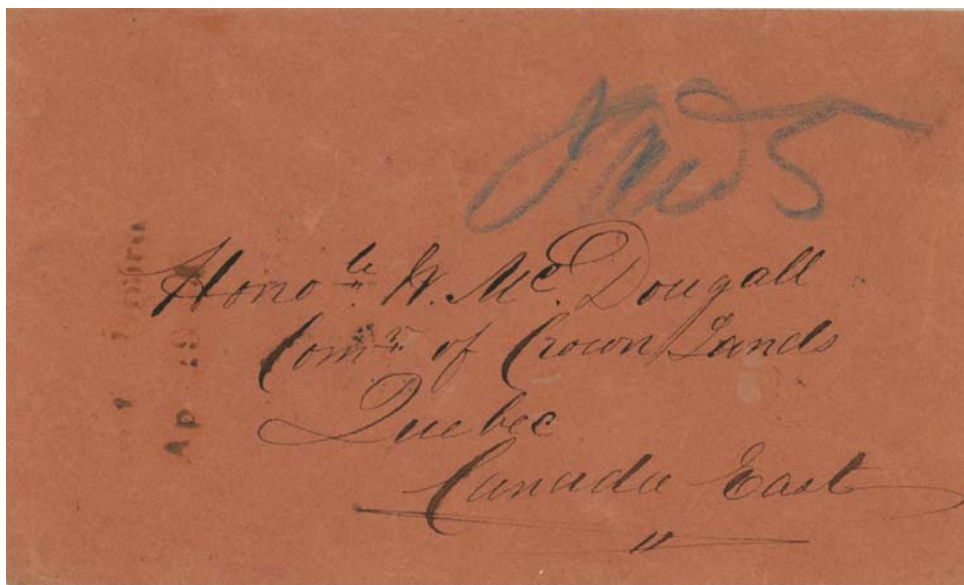 Paid 5
Honoᵇˡᵉ W. Mᶜ.Dougall
Comʳ of Crown Lands
Quebec
Canada East
"
Ap 29